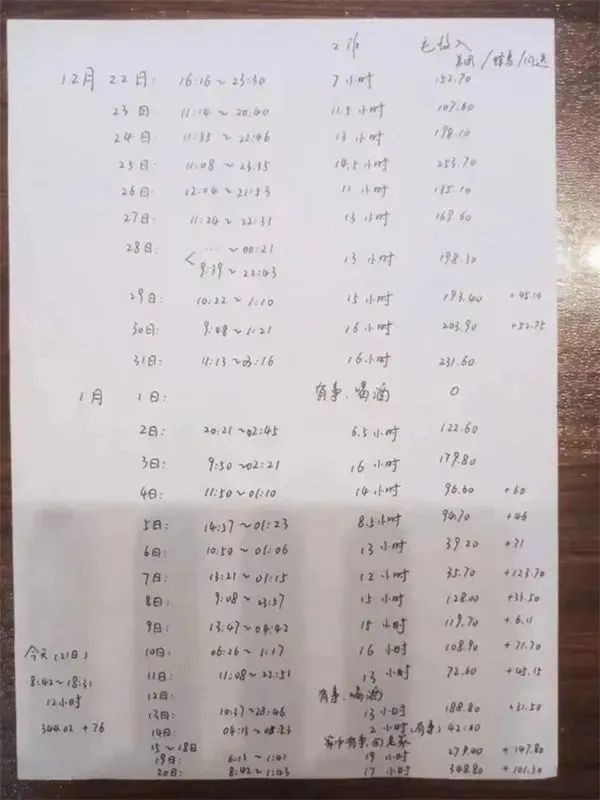 工作 毛收入
美团/蜂鸟/闪送
12月 22日: 16:16~23:30 7小时 152.70
23日: 11:14~20:40 11.5小时 107.60
24日: 11:35~22:46 13小时 198.10
25日: 11:08~23:35 14.5小时 253.70
26日: 12:04~21:53 11小时 135.10
27日: 11:24~22:31 13小时 169.60
28日: < ... ~00:21
9:39~22:43 13小时 198.30
29日: 10:22~1:10 15小时 193.40 +45.10
30日: 9:48~1:21 16小时 203.90 +52.75
31日: 11:13~03:16 16小时 231.60
1月 1日: 有事、喝酒 0
2日: 20:21~02:45 6.5小时 122.60
3日: 9:50~02:21 16小时 179.80
4日: 11:50~01:10 14小时 96.60 +60
5日: 14:37~01:23 8.5小时 94.70 +46
6日: 10:50~01:06 13小时 39.20 +71
7日: 13:21~01:15 12小时 35.70 +123.70
8日: 9:08~23:57 15小时 128.00 +33.50
9日: 13:47~04:42 15小时 119.70 +6.11
10日: 06:26~1:17 16小时 108.90 +71.70
11日: 11:08~22:51 13小时 72.60 +45.15
12日: 有事、喝酒
13日: 10:37~23:46 13小时 188.80 +31.50
14日: 04:15~08:23 2小时(有事) 42.00
15~18日 家中有事,回老家
19日: 6:13~1:41 19小时 279.00 +147.80
20日: 8:42~1:43 17小时 348.80 +101.50
今天(21日)
8:42~18:31
12小时
344.02 +76